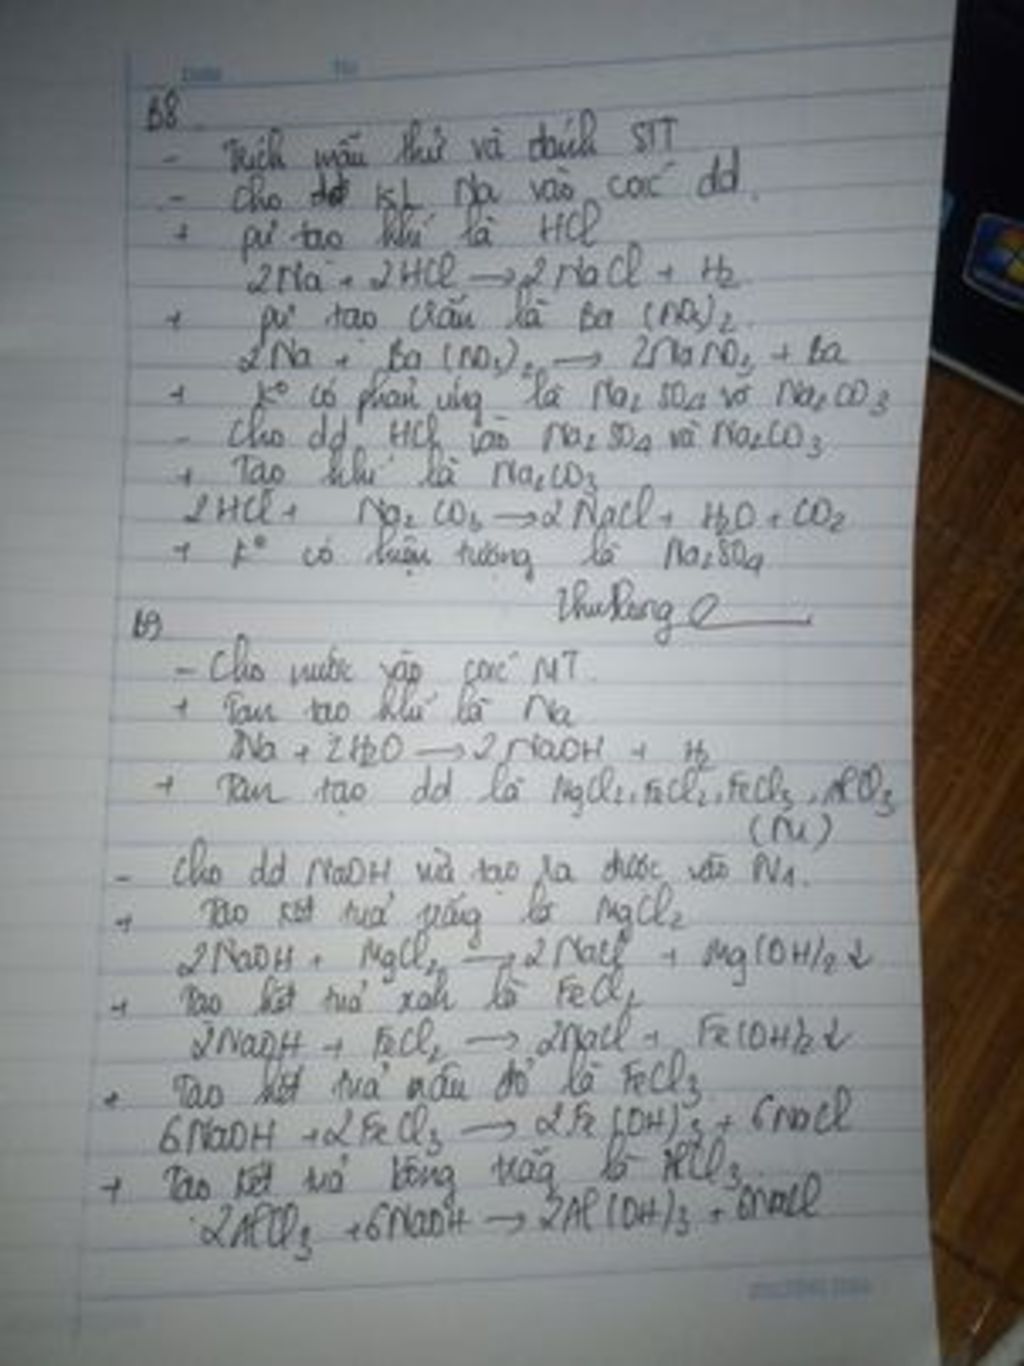 B8
- Trích mẫu thử và đánh STT
- Cho KL Na vào các dd.
+ pứ tạo khí là HCl
2Na + 2HCl → 2NaCl + H2
+ pứ tạo là Ba(NO3)2.
2Na + Ba(NO3)2 → 2NaNO3 + Ba
+ K° có phản ứng là Na2SO4 và Na2CO3
- Cho dd HCl vào Na2SO4 và Na2CO3
+ Tạo khí là Na2CO3
2HCl + Na2CO3 → 2NaCl + H2O + CO2
+ K° có hiện tượng là Na2SO4
B9
- Cho nước vào các MT.
+ Tan tạo khí là Na
2Na + 2H2O → 2NaOH + H2
+ Tan tạo dd là MgCl2, FeCl2, FeCl3, AlCl3
(N1)
- Cho dd NaOH vừa tạo ra được vào N1.
+ Tạo kết tủa trắng là MgCl2
2NaOH + MgCl2 → 2NaCl + Mg(OH)2 ↓
+ Tạo kết tủa xanh là FeCl2
2NaOH + FeCl2 → 2NaCl + Fe(OH)2 ↓
+ Tạo kết tủa nâu đỏ là FeCl3
6NaOH + 2FeCl3 → 2Fe(OH)3 + 6NaCl
+ Tạo kết tủa trắng là AlCl3
2AlCl3 + 6NaOH → 2Al(OH)3 + 6NaCl